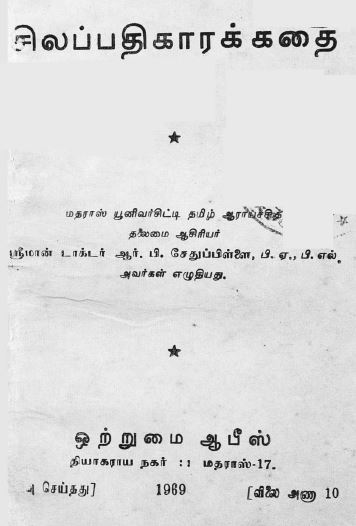 சிலப்பதிகாரக்கதை
மதராஸ் யூனிவர்சிட்டி தமிழ் ஆராய்ச்சித்
தலைமை ஆசிரியர்
ஸ்ரீமான் டாக்டர் ஆர். பி. சேதுப்பிள்ளை, பி. ஏ., பி. எல்.
அவர்கள் எழுதியது.
ஒற்றுமை ஆபீஸ்
தியாகராய நகர் :: மதராஸ்-17.
செய்தது] 1969 [விலை அணா 10